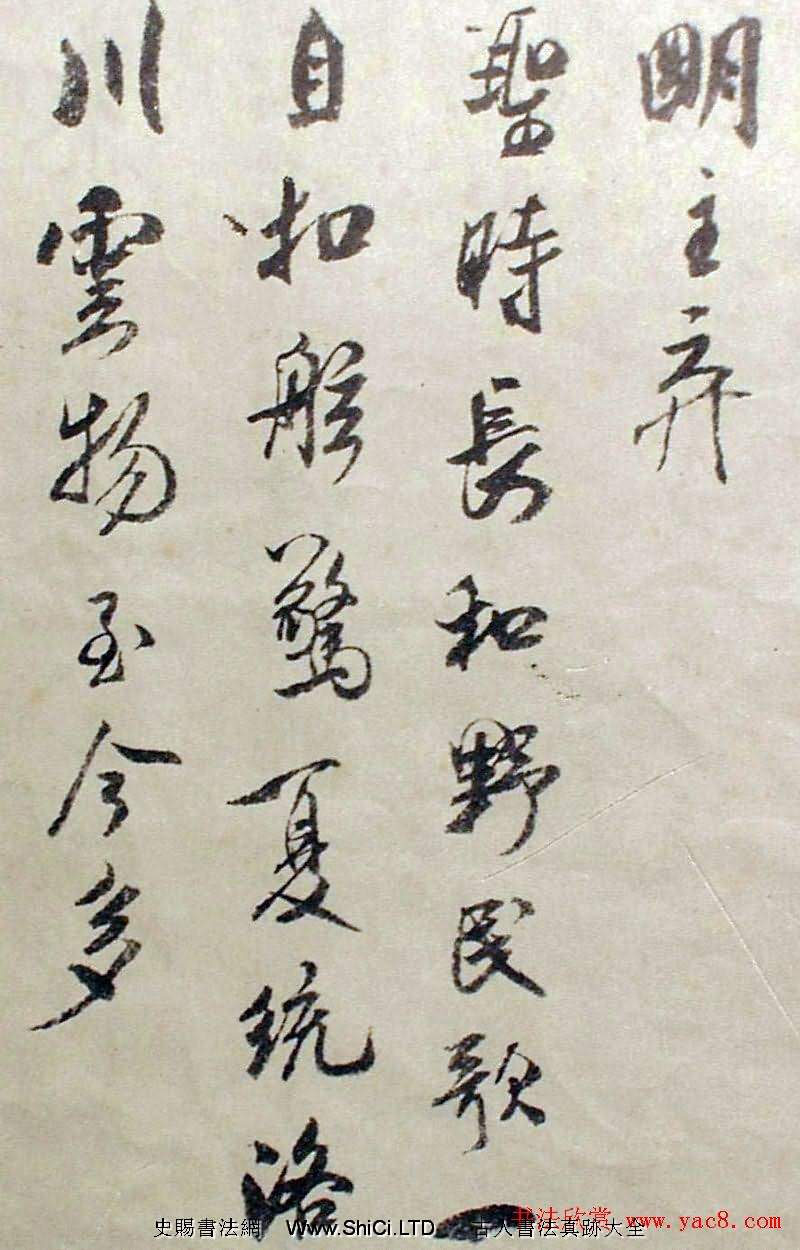 明主弃
聖時長和野民歌一
自扣舷驚夏統洛
川雲物至今多
史賜書法網 www.ShiCi.LTD 古人書法真跡大全
书法欣赏 www.yac8.com